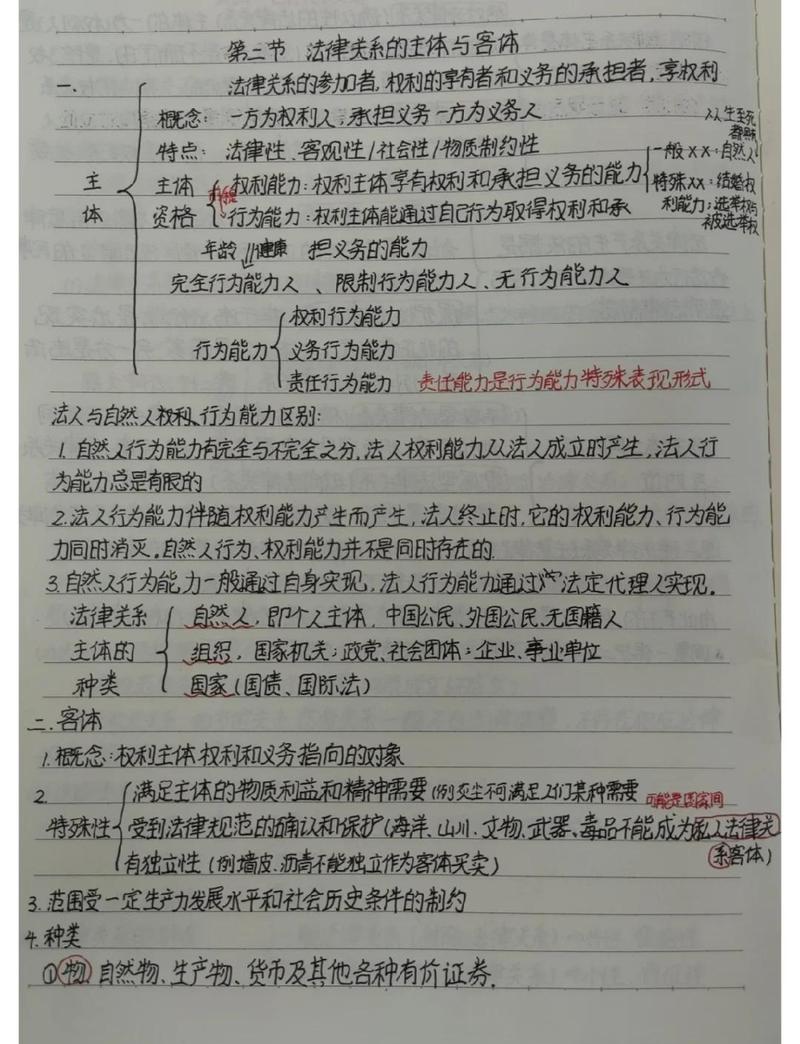 第二节 法律关系的主体与客体
一.
主体
法律关系的参加者,权利的享有者和义务的承担者,享权利
概念: 一方为权利人;承担义务一方为义务人
特点: 法律性、客观性/社会性/物质制约性
主体资格
权利能力:权利主体享有权利和承担义务的能力
人人生至死
一般XX:自然人
特殊XX:结婚权
利能力;选举权与
被选举权
行为能力:权利主体能通过自己行为取得权利和承
年龄 健康 担义务的能力
完全行为能力人、限制行为能力人、无行为能力人
行为能力
权利行为能力
义务行为能力
责任行为能力 责任能力是行为能力特殊表现形式
法人与自然人权利、行为能力区别:
1. 自然人行为能力有完全与不完全之分,法人权利能力从法人成立时产生,法人行
为能力总是有限的
2.法人行为能力伴随权利能力产生而产生,法人终止时,它的权利能力、行为能
力同时消灭.自然人行为、权利能力并不是同时存在的.
3.自然人行为能力一般通过自身实现,法人行为能力通过 法定代理人实现.
法律关系主体的种类
自然人,即个人主体,中国公民、外国公民、无国籍人
组织,国家机关;政党、社会团体;企业、事业单位
国家(国债、国际法)
二.客体
1.概念:权利主体权利和义务指向的对象
2.特殊性
满足主体的物质利益和精神需要(例灰尘不可满足人们某种需要
可能是国家间
受到法律规范的确认和保护(海洋、山川.文物、武器、毒品不能成为私人法律关
系客体)
有独立性(例墙皮、沥青不能独立作为客体买卖)
3.范围受一定生产力发展水平和社会历史条件的制约
4.种类
①物.自然物、生产物、货币及其他各种有价证券.